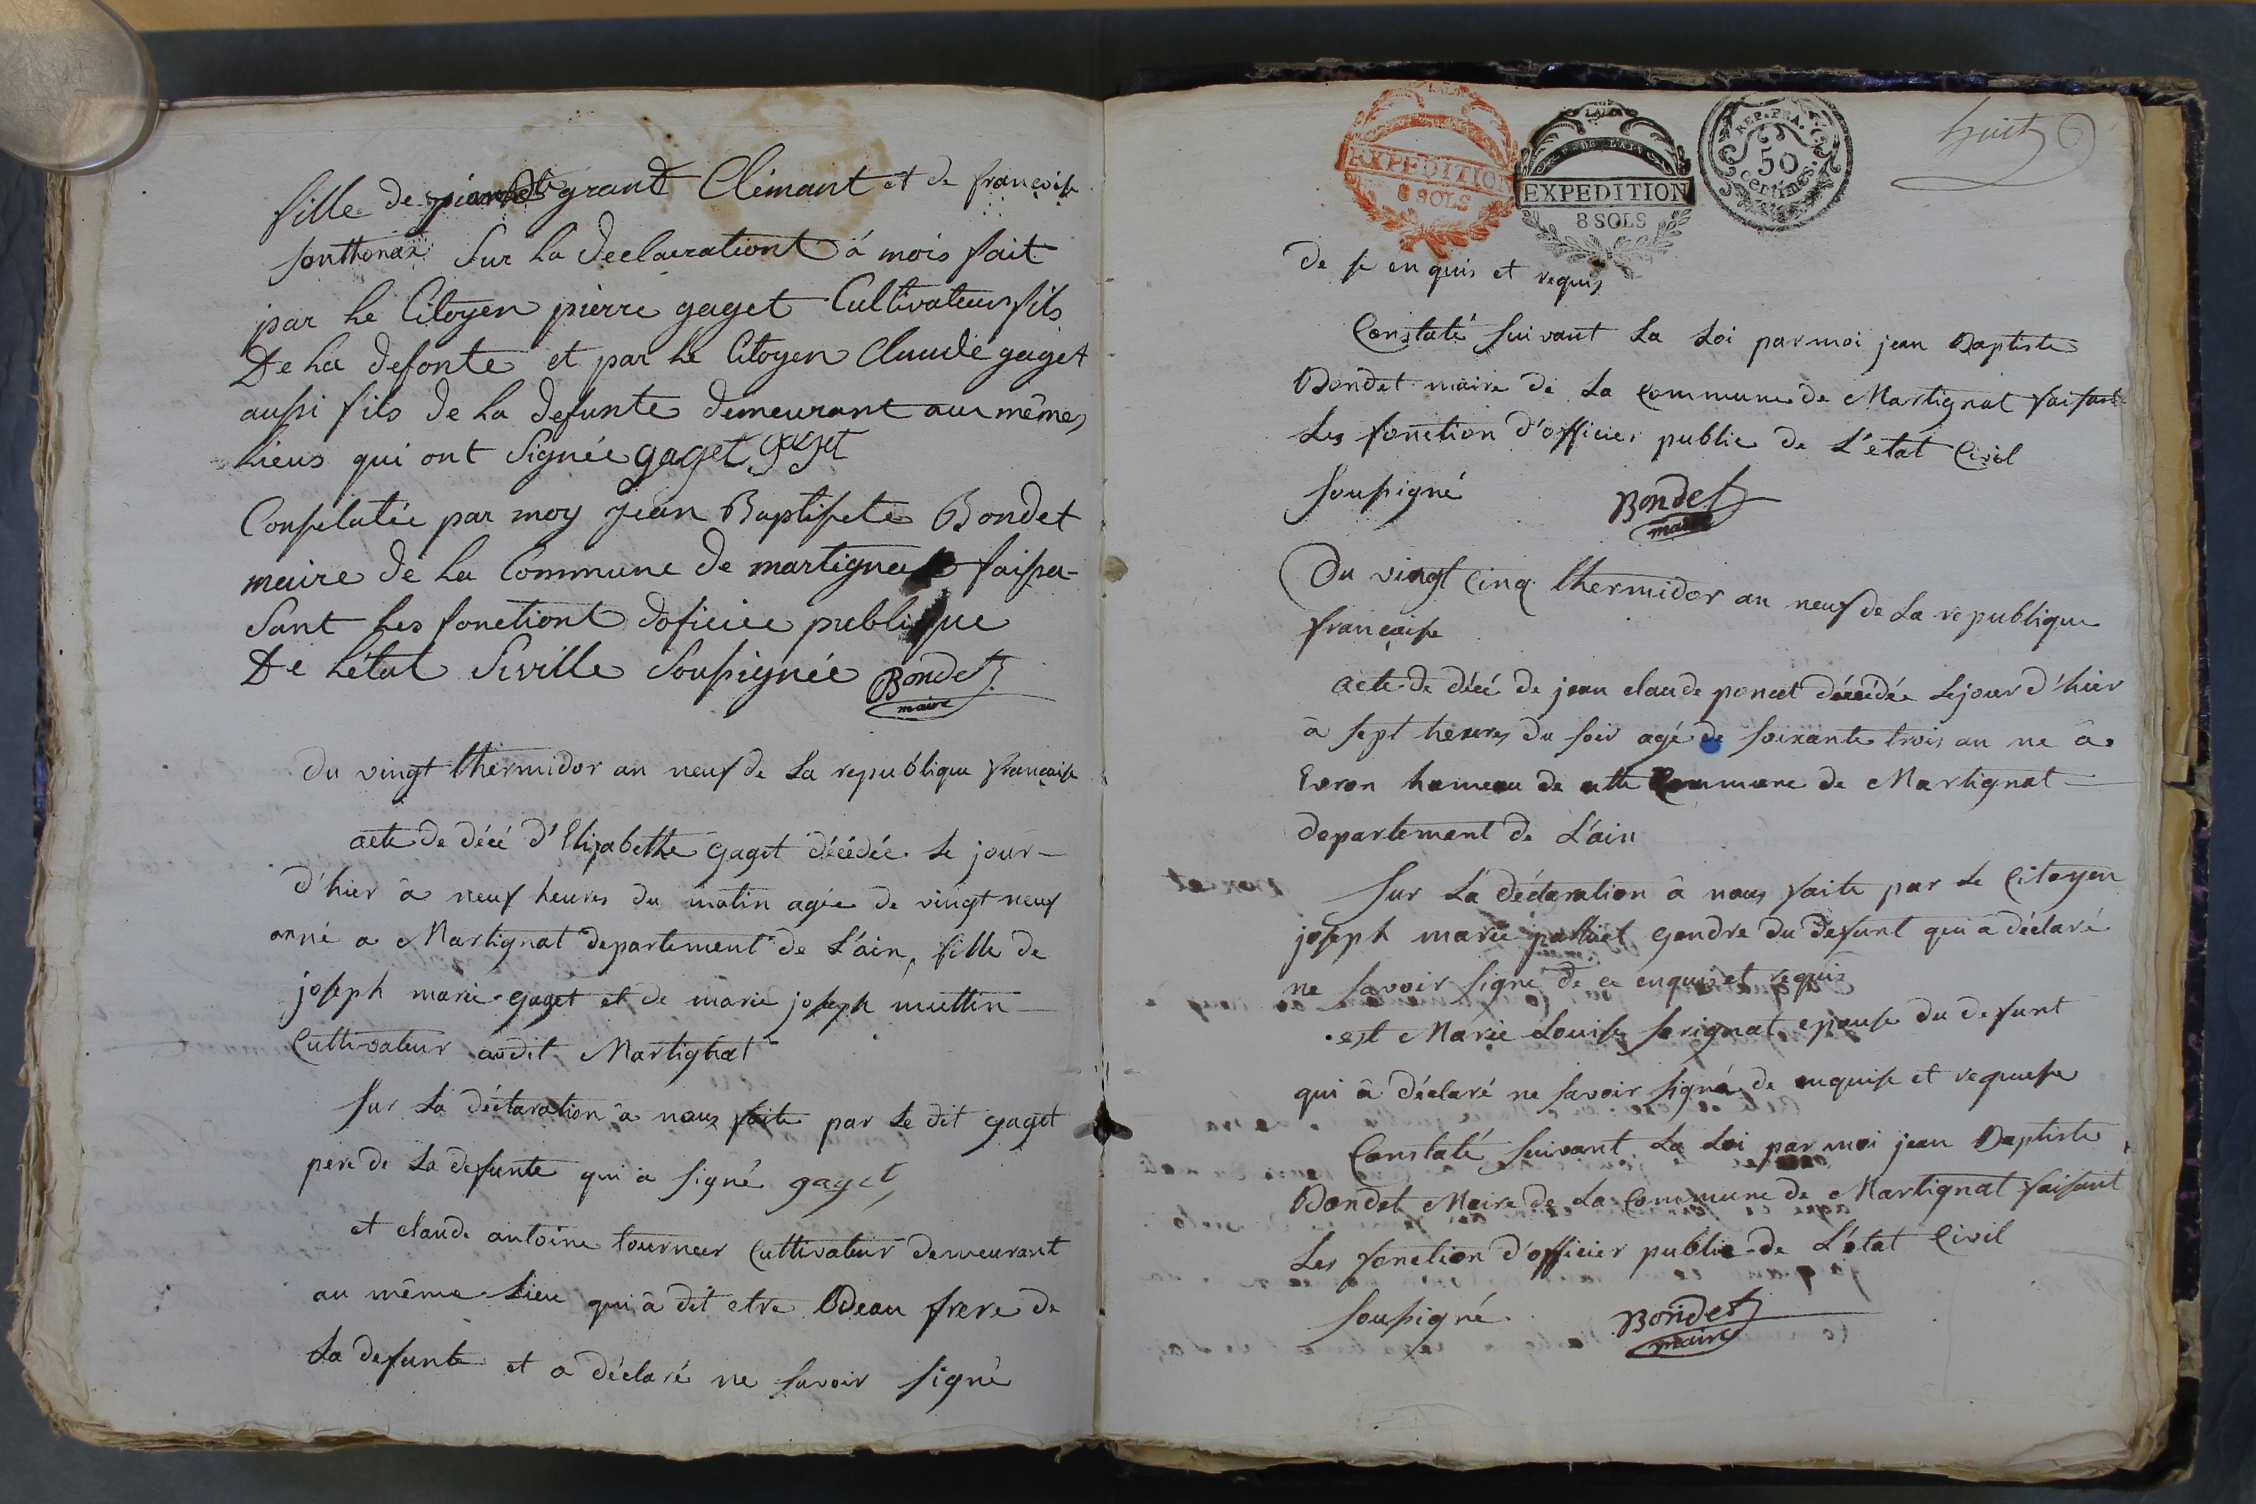 fille de grant Clémant et de françoise
sonthonax sur la declairationt à mois fait
par le Citoyen pierre gaget Cultivateur fils
De la defonte et par le Citoyen Claude gaget
aussi fils de la defunte demeurant au même
Lieus qui ont Signée gaget gaget
Conselatée par moy jean Baptisete Bondet
maire de la Commune de martignat faisa-
sant les fonctiont doficiee publique
De létat Seville Soussignée Bondet
maire
Du vingt thermidor an neuf de La republique française
acte de décé d'Elizabethe gaget décédée Le jour-
d'hier à neuf heures du matin agée de vingt neuf
an né a Martignat departement de L'ain, fille de
joseph marie gaget et de marie joseph muttin
Cultivateur audit Martignat
Sur La déclaration à nous faite par Le dit gaget
pere de La defunte qui a signé gaget
et claude antoine tournier Cultivateur demeurant
au même Lieu qui à dit etre Beau frere de
La defunte et a déclaré ne savoir signé
huit
EXPEDITION
8 SOLS
EXPEDITION
8 SOLS
REP. FRA.
50
centimes.
De se enquis et requis
Constaté suivant La Loi par moi jean Baptiste
Bondet maire de La Commune de Martignat faisant
Les fonction d'officier public de L'état Civil
soussigné Bondet
maire
Du vingt Cinq thermidor an neuf de La republique
française
acte de décé de jean claude poncet décédée Le jour d'hier
à sept heures du soir agé de soixante trois an ne à
Evron hameau de cette Commune de Martignat
departement de L'ain
Sur La déclaration à nous faite par Le Citoyen
joseph marie gendre du defunt qui à déclaré
ne savoir signé de ce enquis et requis
est Marie Louise serignat epouse du defunt
qui à déclaré ne savoir signé de enquise et requise
Constaté suivant La Loi par moi jean Baptiste
Bondet Maire de La Commune de Martignat faisant
Les fonction d'officier public de L'etat Civil
soussigné Bondet
maire